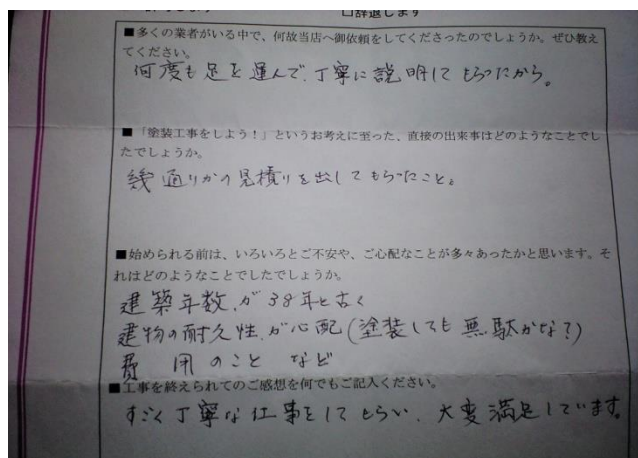 □辞退します
■多くの業者がいる中で、何故当店へ御依頼をしてくださったのでしょうか。ぜひ教え
てください。
何度も足を運んで、丁寧に説明してもらったから。
■「塗装工事をしよう!」というお考えに至った、直接の出来事はどのようなことでし
たでしょうか。
幾通りかの見積りを出してもらったこと。
■始められる前は、いろいろとご不安や、ご心配なことが多々あったかと思います。そ
れはどのようなことでしたでしょうか。
建築年数が38年と古く
建物の耐久性が心配(塗装しても無駄かな?)
費用のこと など
■工事を終えられてのご感想を何でもご記入ください。
すごく丁寧な仕事をしてもらい、大変満足しています。